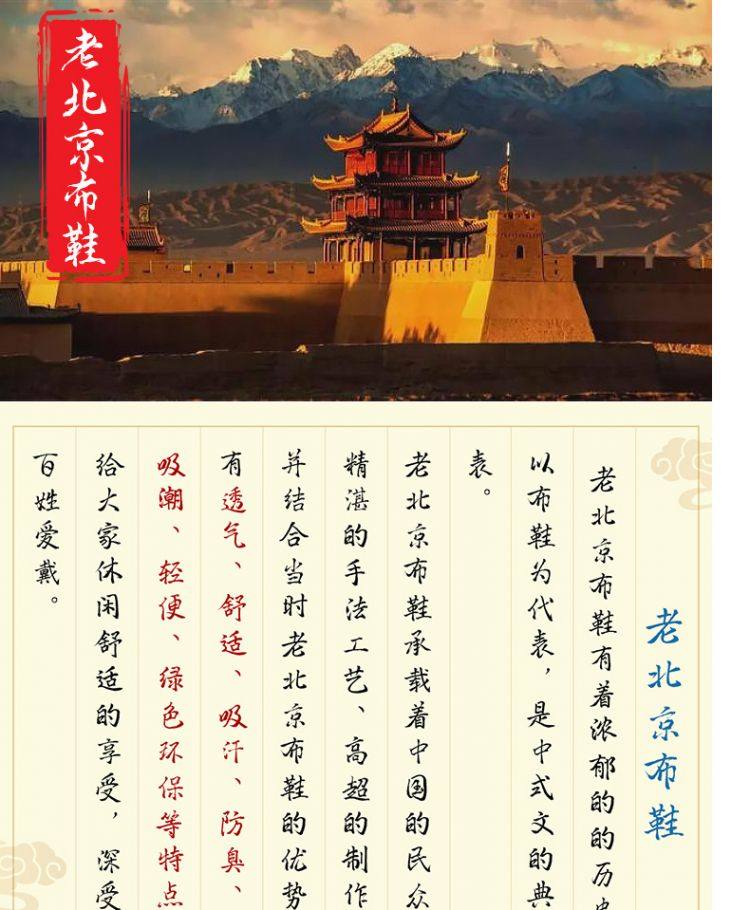 老北京布鞋
老北京布鞋
老北京布鞋有着浓郁的的历史
以布鞋为代表，是中式文的典
表。
老北京布鞋承载着中国的民众
精湛的手法工艺、高超的制作
并结合当时老北京布鞋的优势
有透气、舒适、吸汗、防臭、
吸潮、轻便、绿色环保等特点
给大家休闲舒适的享受，深受
百姓爱戴。